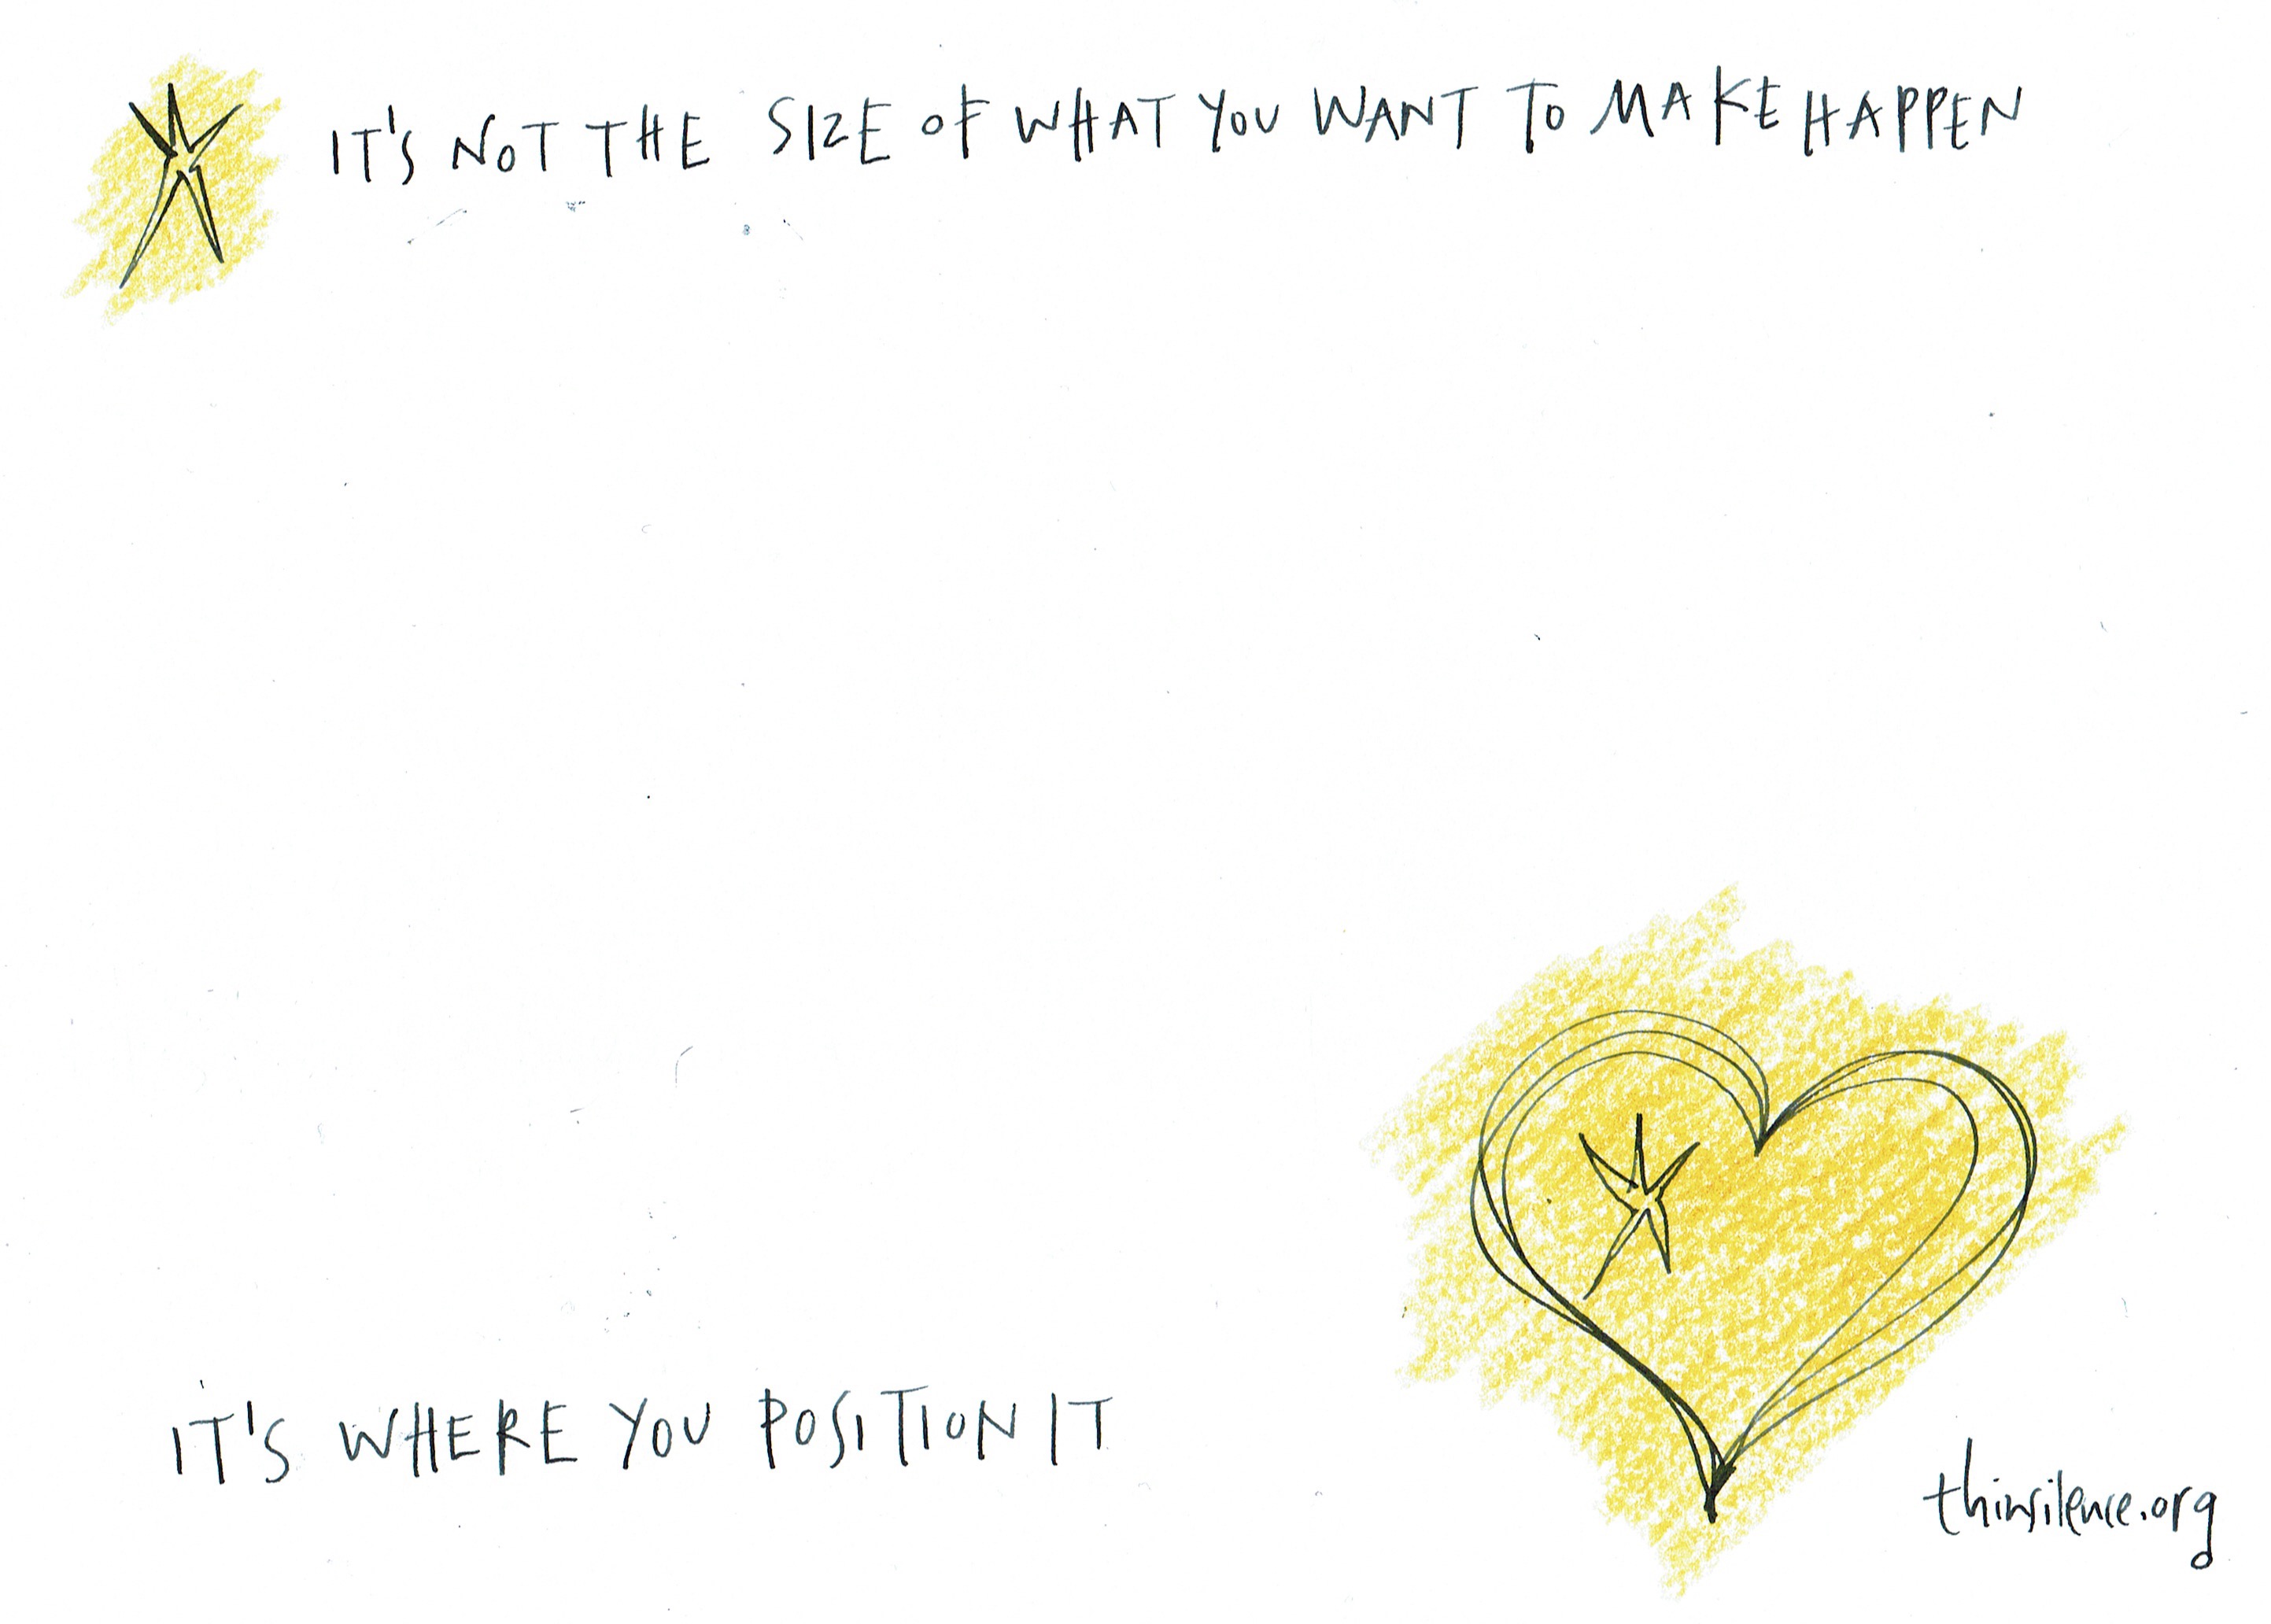 IT'S NOT THE SIZE OF WHAT YOU WANT TO MAKE HAPPEN
IT'S WHERE YOU POSITION IT
thinsilence.org